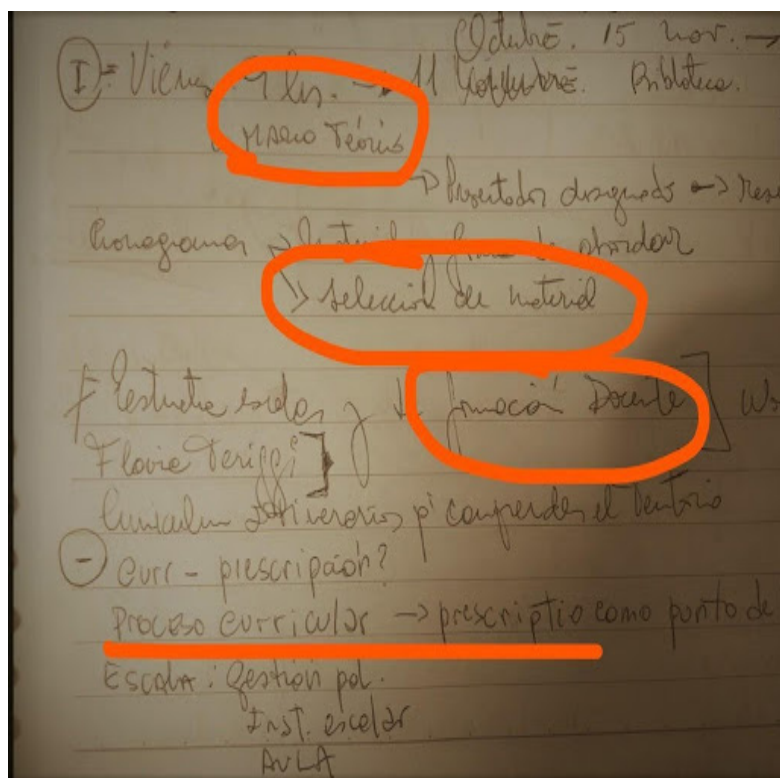 Octubre. 15 nov. →
I = Viernes 9 hs. → 11 Biblioteca.
Marco Teórico
→ designado → rese
Cronograma → de abordar
↳ selección de material
y ↓ formación Docente] Ws
Flavia Terigi }
Curriculum Itinerarios p' comprender el territorio
- Curr - prescripción?
Proceso curricular → prescriptio como punto de
Escala: Gestión pol.
Inst. escolar
AULA